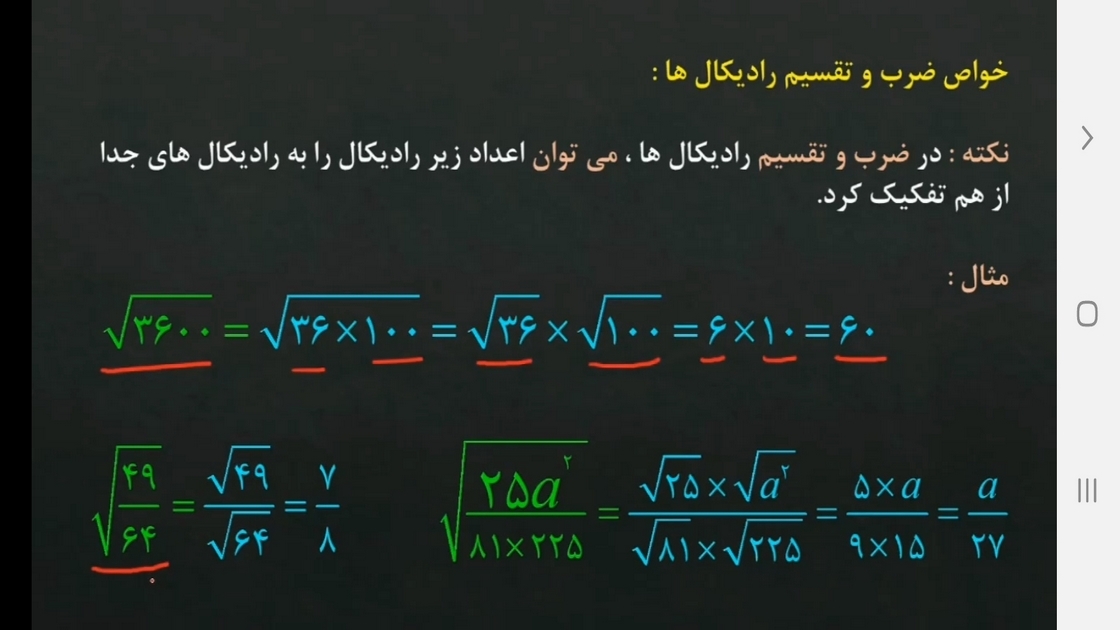 خواص ضرب و تقسیم رادیکال ها :
نکته : در ضرب و تقسیم رادیکال ها ، می توان اعداد زیر رادیکال را به رادیکال های جدا
از هم تفکیک کرد.
مثال :
√۳۶۰۰ = √۳۶×۱۰۰ = √۳۶ × √۱۰۰ = ۶×۱۰ = ۶۰
√(۴۹/۶۴) = √۴۹/√۶۴ = ۷/۸
√(۲۵a^۲/(۸۱×۲۲۵)) = (√۲۵×√a^۲)/(√۸۱×√۲۲۵) = (۵×a)/(۹×۱۵) = a/۲۷